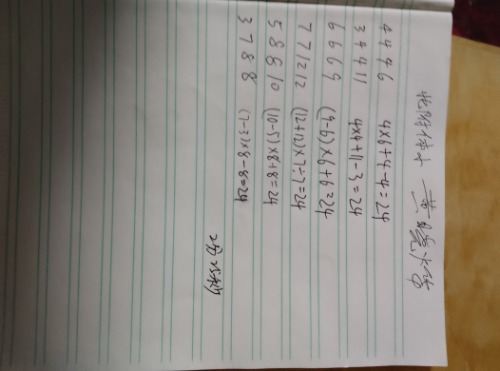 4 4 4 6 4×6+4-4=24
3 4 4 11 4×4+11-3=24
6 6 6 9 (9-6)×6+6=24
7 7 12 12 (12+12)×7÷7=24
5 8 8 10 (10-5)×8+8=24
3 7 8 8 (7-3)×8-8=24